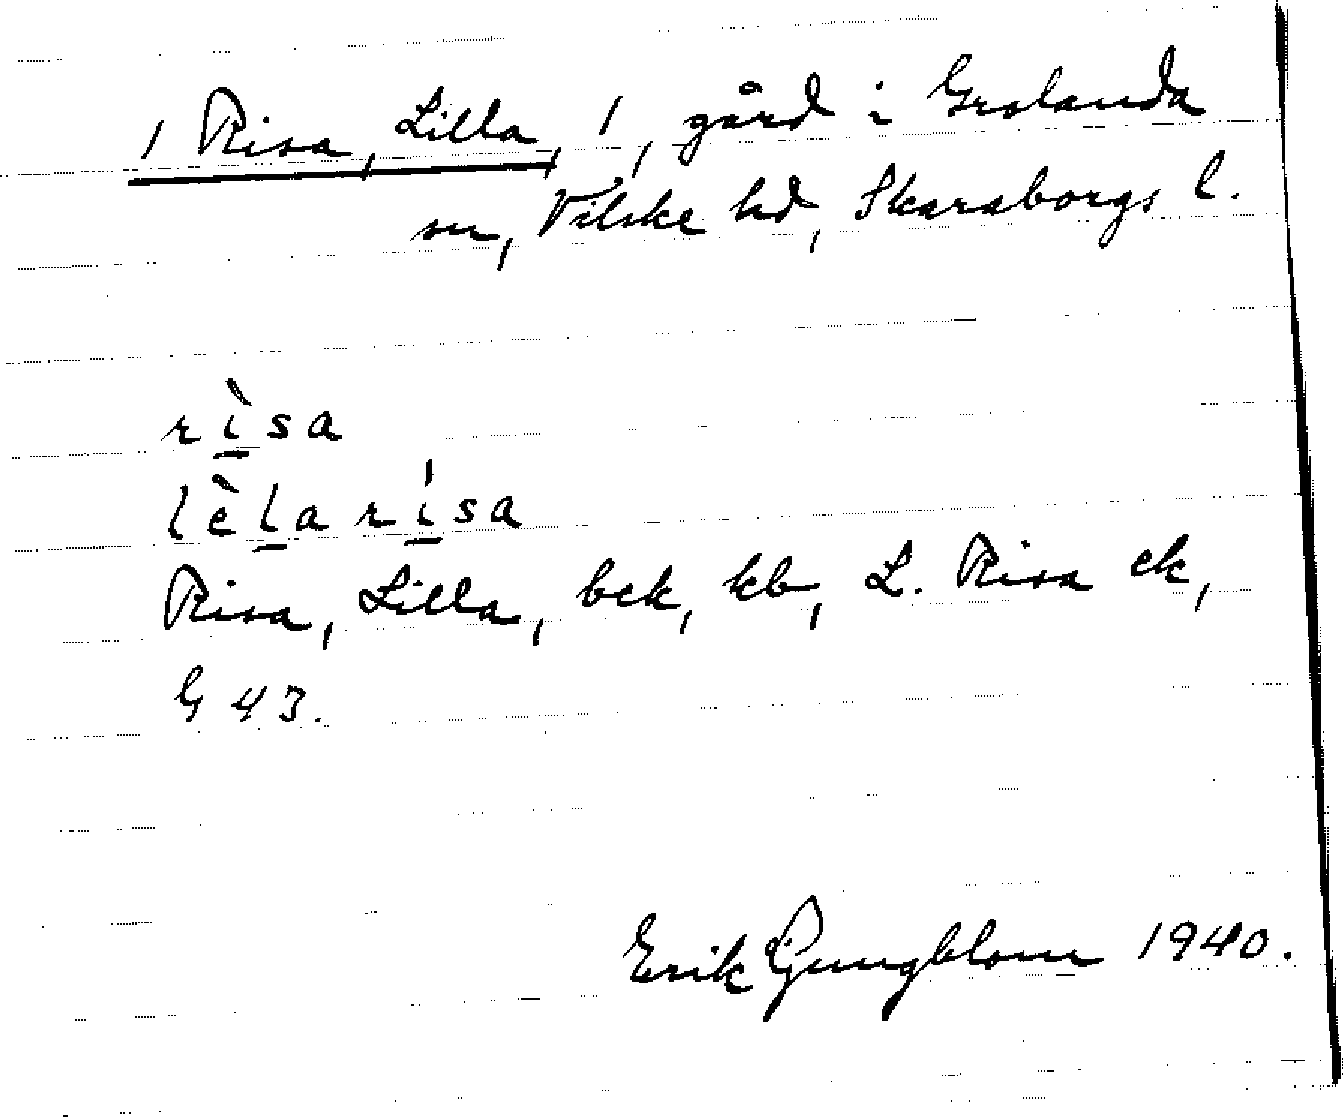 1 Risa, Lilla, 1, gård i Grolanda
sn, Vilske hd, Skaraborgs l.
rìsa
lèla rísa
Risa, Lilla, bek, kb, L. Risa ek,
G 43.
Erik Ljungblom 1940.